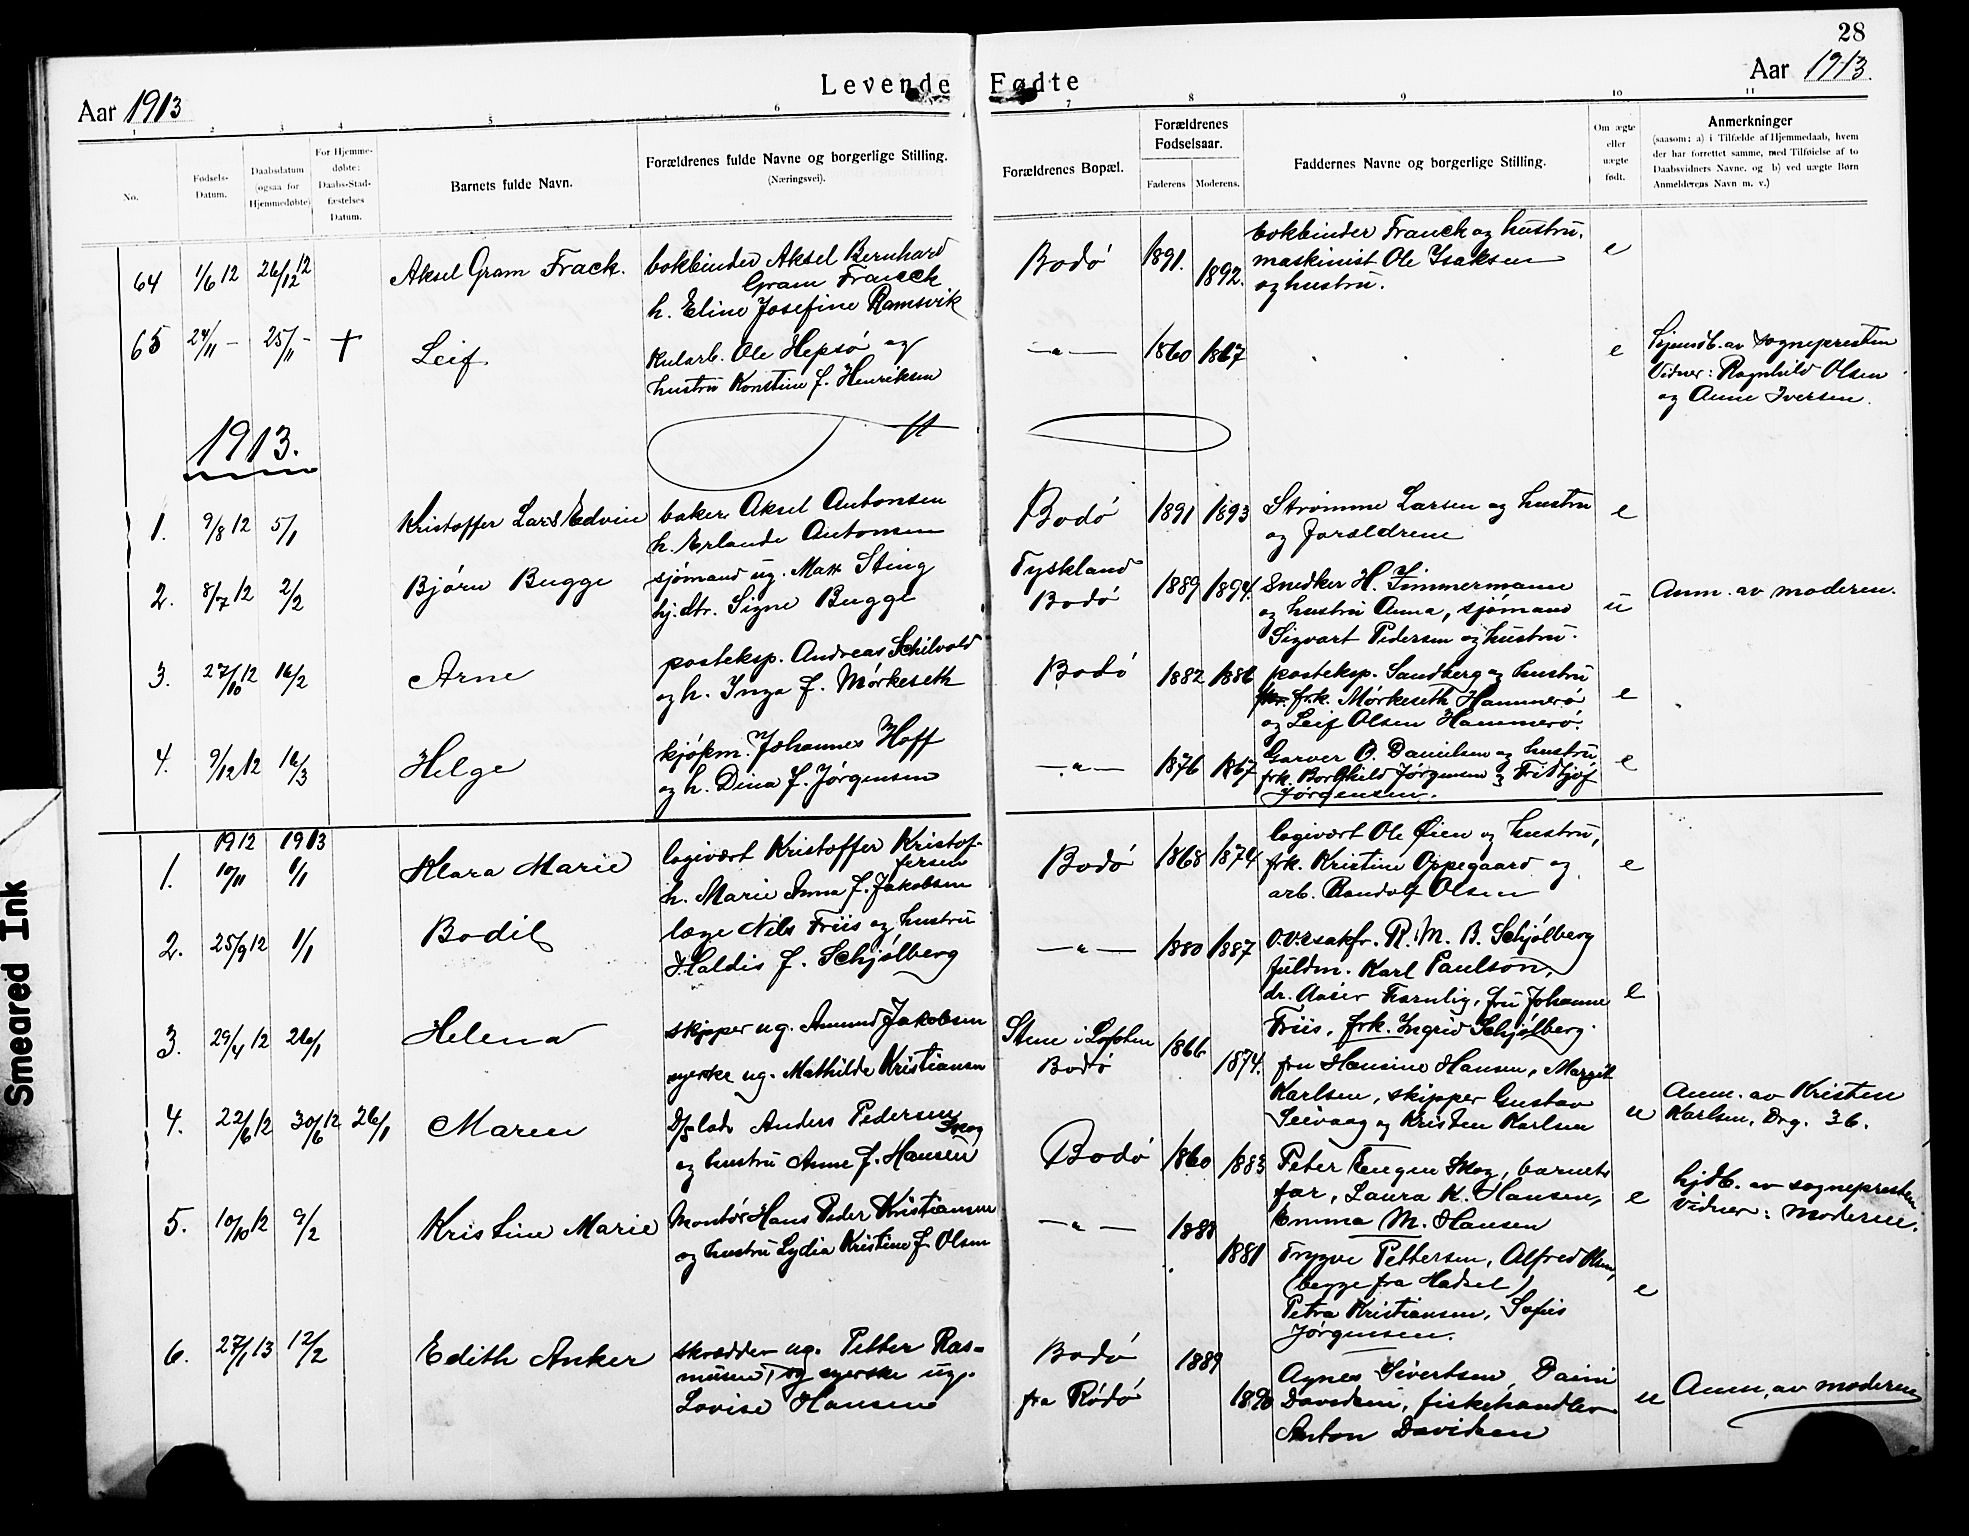 28
Levende Fødte
Aar 1913
Aar 1913.
1 2 3 4 5 6 7 8 9 10 11
No.
Fødsels-
Datum.
Daabsdatum
(ogsaa for
Hjemmedøbte)
For Hjemme-
døbte:
Daabs-Stad-
fæstelses
Datum.
Barnets fulde Navn.
Forældrenes fulde Navne og borgerlige Stilling.
(Næringsvei).
Forældrenes Bopæl.
Forældrenes
Fødselsaar.
Faderens Moderens.
Faddernes Navne og borgerlige Stilling.
Om ægte
eller
uægte
født.
Anmerkninger
(saasom: a) i Tilfælde af Hjemmedaab, hvem
der har forrettet samme, med Tilføielse af to
Daabsvidners Navne, og b) ved uægte Børn
Anmelderens Navn m. v.)
64 1/6 12 26/12 12 Aksel Gram Frack.
bokbinder Aksel Bernhard
Gram Franck
h. Eline Josefine Ramsvik
Bodó 1891. 1892.
bokbinder Franck og hustru.
maskinist Ole Isaksen
og hustru.
e
65 24/11 – 25/11 – + Leif
Ole Hepsó og
hustru Konstine f. Henriksen
—"— 1860 1867
e
av sognepresten
Vidner: Ragnhild Olsen
og Anne Iversen.
1913.
1. 9/8 12 5/1 Kristoffer Lars Edvin
baker Aksel Antonsen
h. Erlande Antonsen
Bodó 1891 1893
Strømme Larsen og hustru
og forældrene
e
2. 8/7 12 2/2 Bjórn Bugge
sjómand ug. Max Sting
hj. dtr. Signe Bugge
Tyskland
Bodó
1889 1894.
Snedker H. Zimmermann
og hustru Anna, sjómand
Sigvart Pedersen og hustru.
u
Anm. av moderen.
3. 27/10 12 16/2 Arne
posteksp. Andreas Schilvold
og h. Inga f. Mórkeseth
Bodó 1882 1886
posteksp. Sandberg og hustru
frk. Mórkeseth Hammeró
og Leif Olsen Hammeró.
e
4. 9/12 12 16/3 Helge
kjópm. Johannes Hoff
og h. Dina f. Jørgensen
—"— 1876 1867
Garver O. Danielsen og hustru,
frk. Borghild Jørgensen og Fridtjof
Jørgensen.
e
1912 1913
1. 10/11 1/1 Klara Marie
logivært Kristoffer Kristof-
fersen
h. Marie Anna f. Jakobsen
Bodó 1868 1874
logivært Ole Øien og hustru,
frk. Kristine Oppegaard og
arb. Randolf Olsen
e
2. 25/9 12 1/1 Bodil
læge Nils Friis og hustru
Haldis f. Schjólberg
—"— 1880 1887
o.r.sakfr. R. M. B. Schjólberg
fuldm. Karl Paulson,
dr. fru Johanne
Friis, frk. Ingrid Schjólberg.
e
3. 29/4 12 26/1 Helena
skipper ug. Amund Jakobsen
syerske ug. Mathilde Kristiansen
Stene i Lofoten
Bodó
1866 1874.
fru Hansine Hansen, Margit
Karlsen, skipper Gustav
og Kristen Karlsen
u
Anm. av Kristen
Karlsen, Drg. 36.
4. 22/6 12 30/6 12 26/1 Maren
Anders Pedersen
Skog
og hustru Anne f. Hansen
Bodó 1860 1883
Peter Eugen Skog, barnets
far, Laura K. Hansen,
Emma M. Hansen
e
hjdb. av sognepresten
Vidner: moderen.
5. 10/10 12 9/2 Kristine Marie
Montór Hans Peder Kristiansen
og hustru Lydia Kristine f. Olsen
—"— 1888 1881
Trygve Pettersen, Alfred Olsen,
(begge fra Hadsel)
Petra Kristiansen, Sofus
Jørgensen.
e
6. 27/1 13 12/2 Edith Anker
skrædder ug. Petter Ras-
musen, og syerske ug.
Lovise Hansen
Bodó
fra Ródó
1889 1890
Agnes Sivertsen,
Davidsen, fiskehandler
Anton Davidsen
u
Anm. av moderen
Smeared Ink